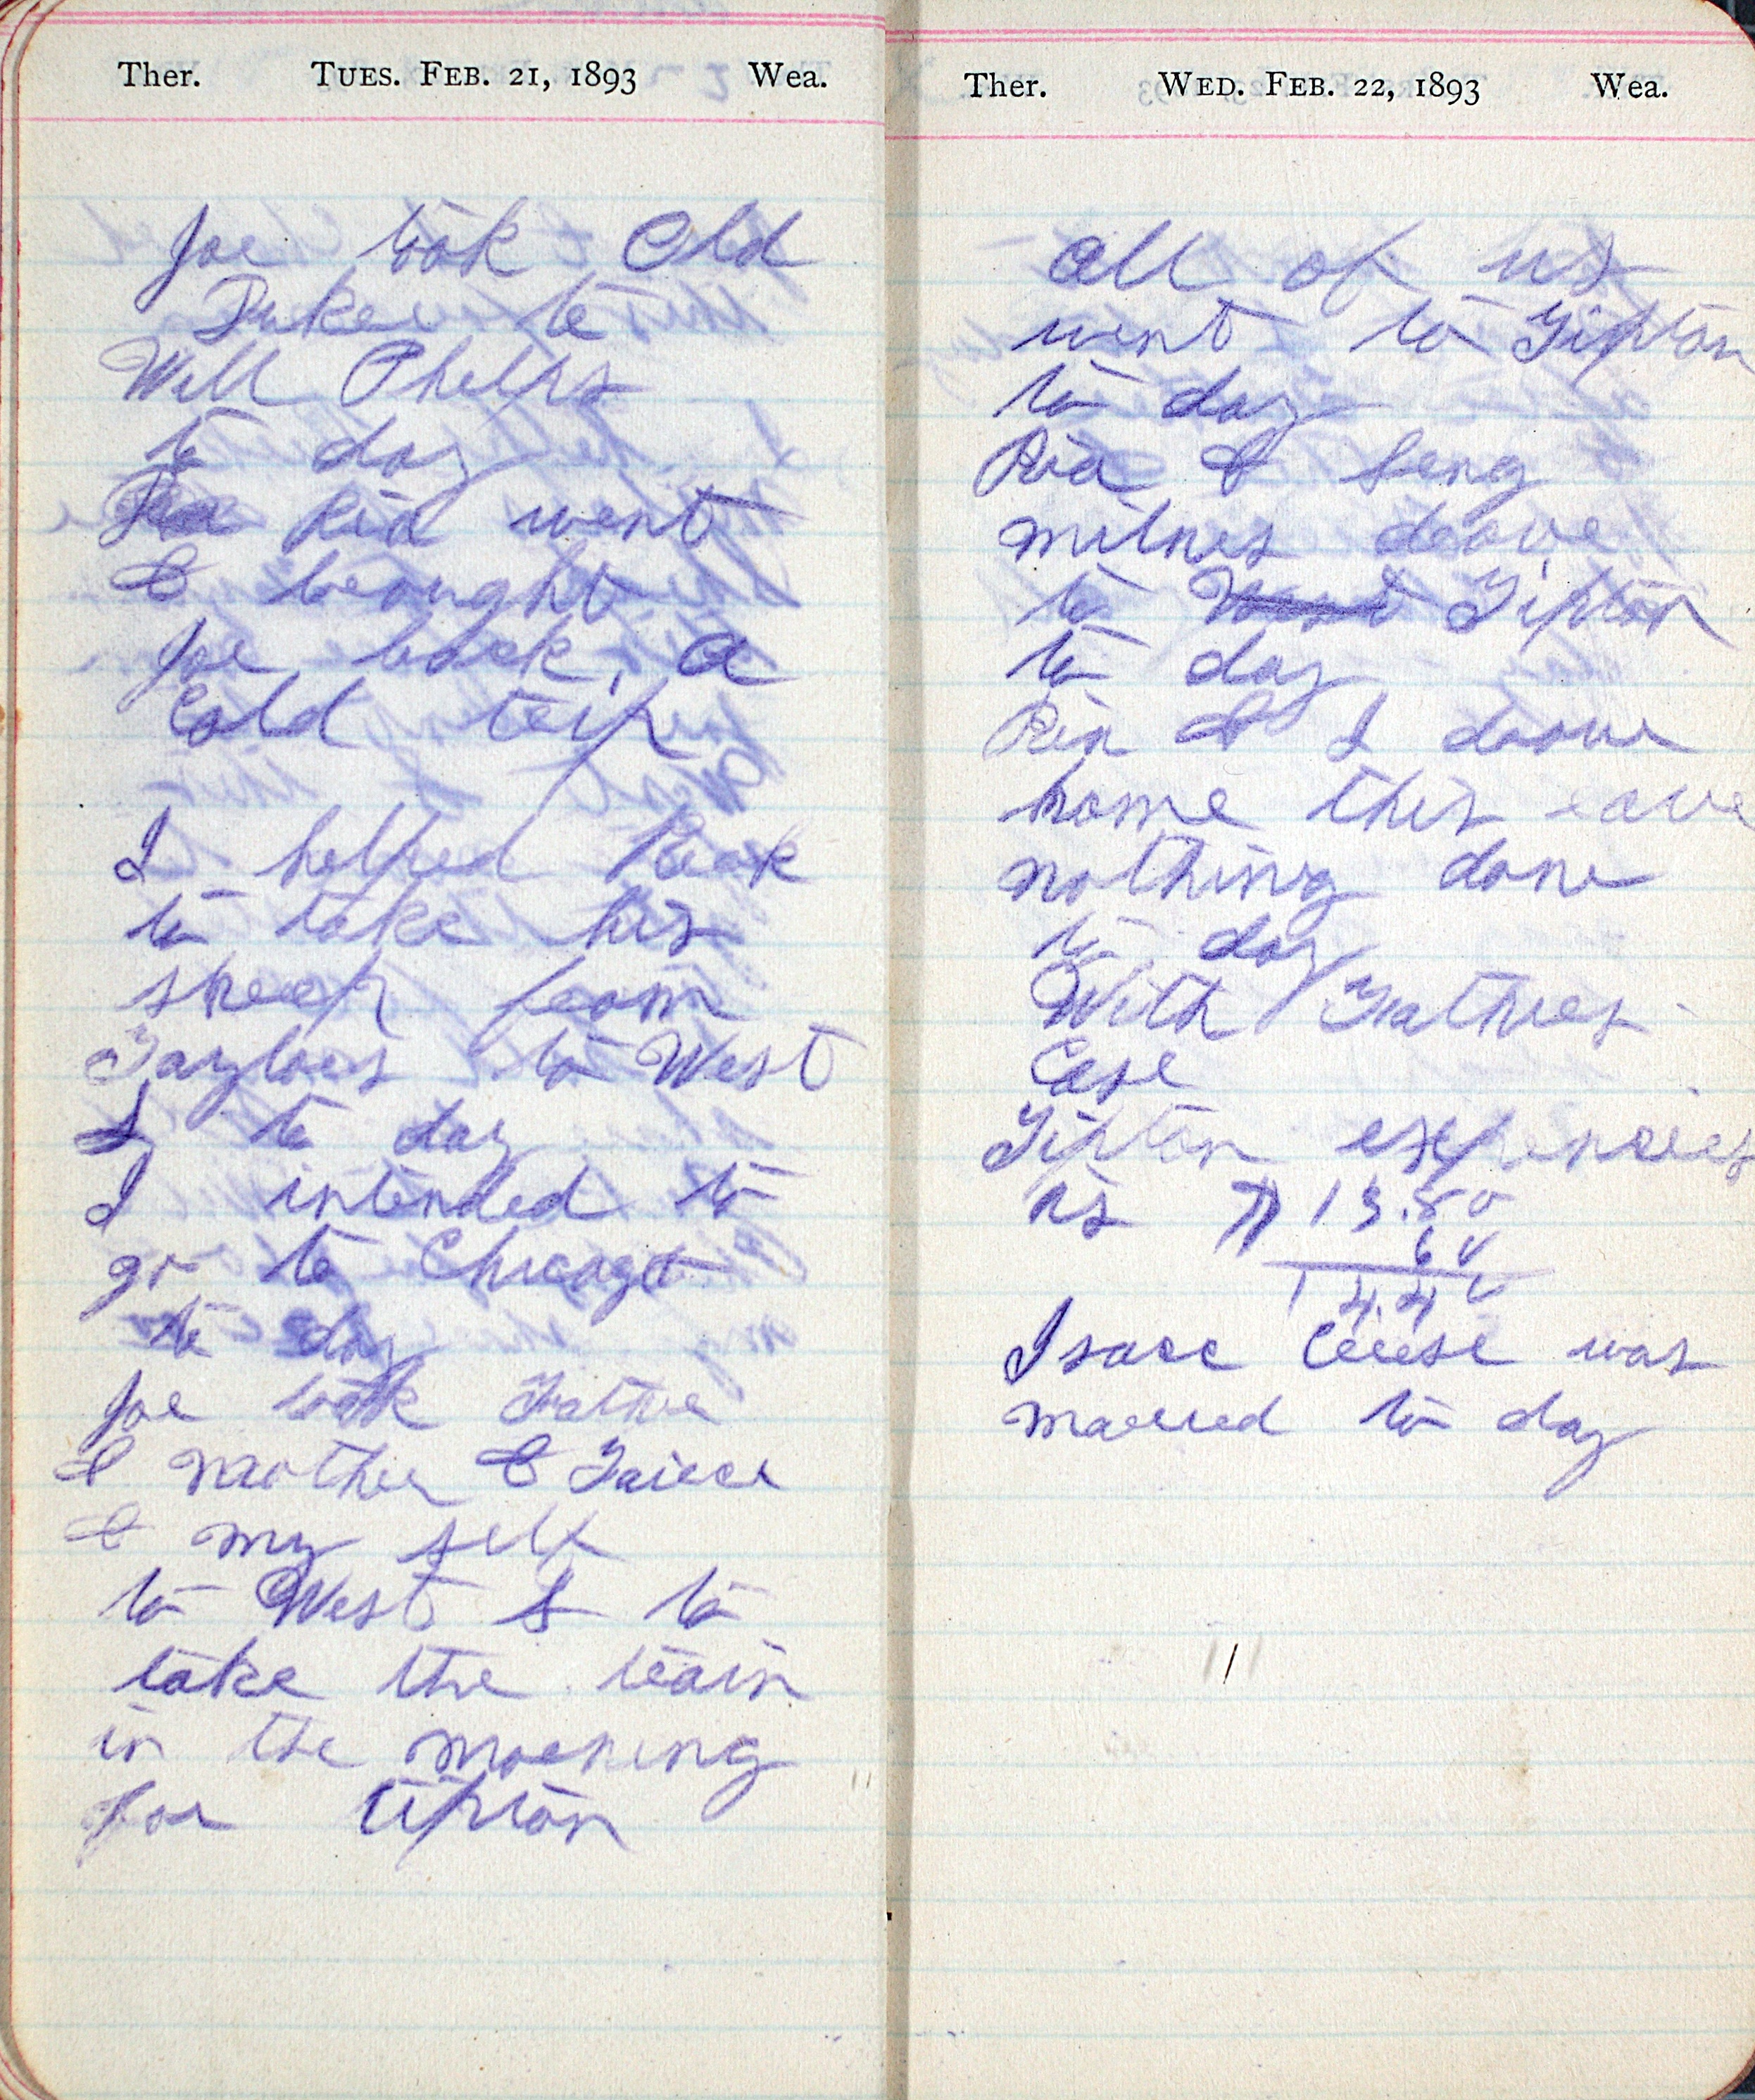 Ther. TUES. FEB. 21, 1893 Wea.
Joe took Old
Duke to
Will Phelps
to day
Ria went
& brought
Joe back, a
Cold trip
I helped
to take his
sheep from
Taylors to West
to day
I intended to
go to Chicago
to day
Joe took Father
& Mother &
& my self
to West to
take the train
in the morning
for tipton
Ther. WED. FEB. 22, 1893 Wea.
all of us
went to Tipton
to day
Ria &
milnes drove
to Tipton
to day
& I drove
home this eave
nothing done
to day
With Fathers
Case
Tipton expencies
is 13.80
60
14.40
Isaac was
marred to day